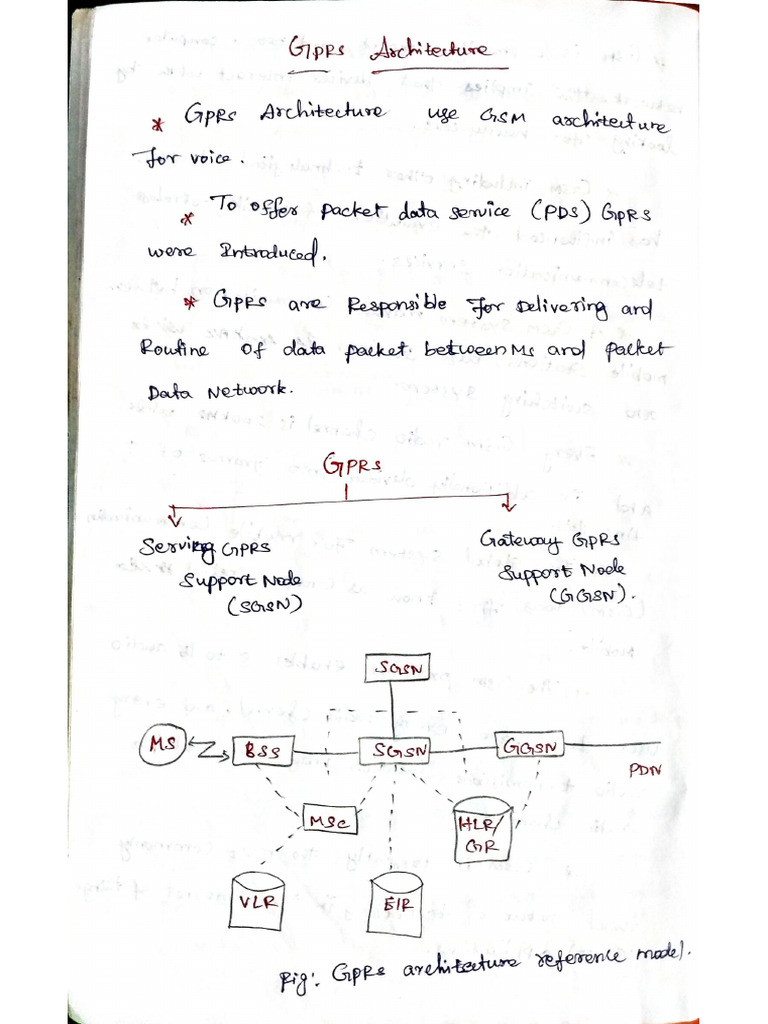 GPRS Architecture
* GPRS Architecture use GSM architecture
for voice.
* To offer packet data service (PDS) GPRS
were Introduced.
* GPRS are Responsible for Delivering and
Routine of data packet between MS and packet
Data Network.
GPRS
Serving GPRS
Support Node
(SGSN)
Gateway GPRS
Support Node
(GGSN).
SGSN
MS
BSS
SGSN
GGSN
PDN
MSC
HLR/
GR
VLR
EIR
Fig: GPRS architecture reference model.